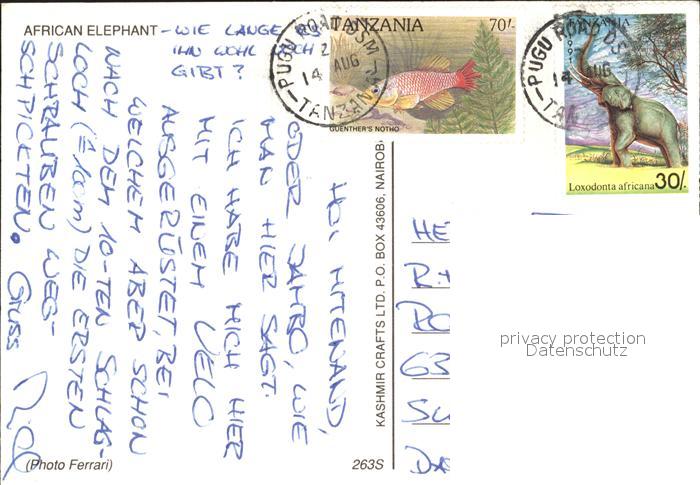 AFRICAN ELEPHANT - WIE LANGE ES
IHN WOHL NOCH
GIBT?
HOI MITENAND,
ODER JAMBO, WIE
MAN HIER SAGT.
ICH HABE MICH HIER
MIT EINEM VELO
AUSGERÜSTET, BEI
WELCHEM ABER SCHON
NACH DEM 10-TEN SCHLAG-
LOCH (≙ 100m) DIE ERSTEN
SCHRAUBEN WEG-
SCHPICKTEN.
GRUSS
(Photo Ferrari)
263S
KASHMIR CRAFTS LTD. P.O. BOX 43606, NAIROBI
TANZANIA
70/-
GUENTHER'S NOTHO
PUGU ROAD DSM
14 AUG
TANZANIA
TANZANIA
1991
Loxodonta africana 30/-
PUGU ROAD DS
14 AUG
TAN
HE
R
RO
63
SU
DA
privacy protection
Datenschutz